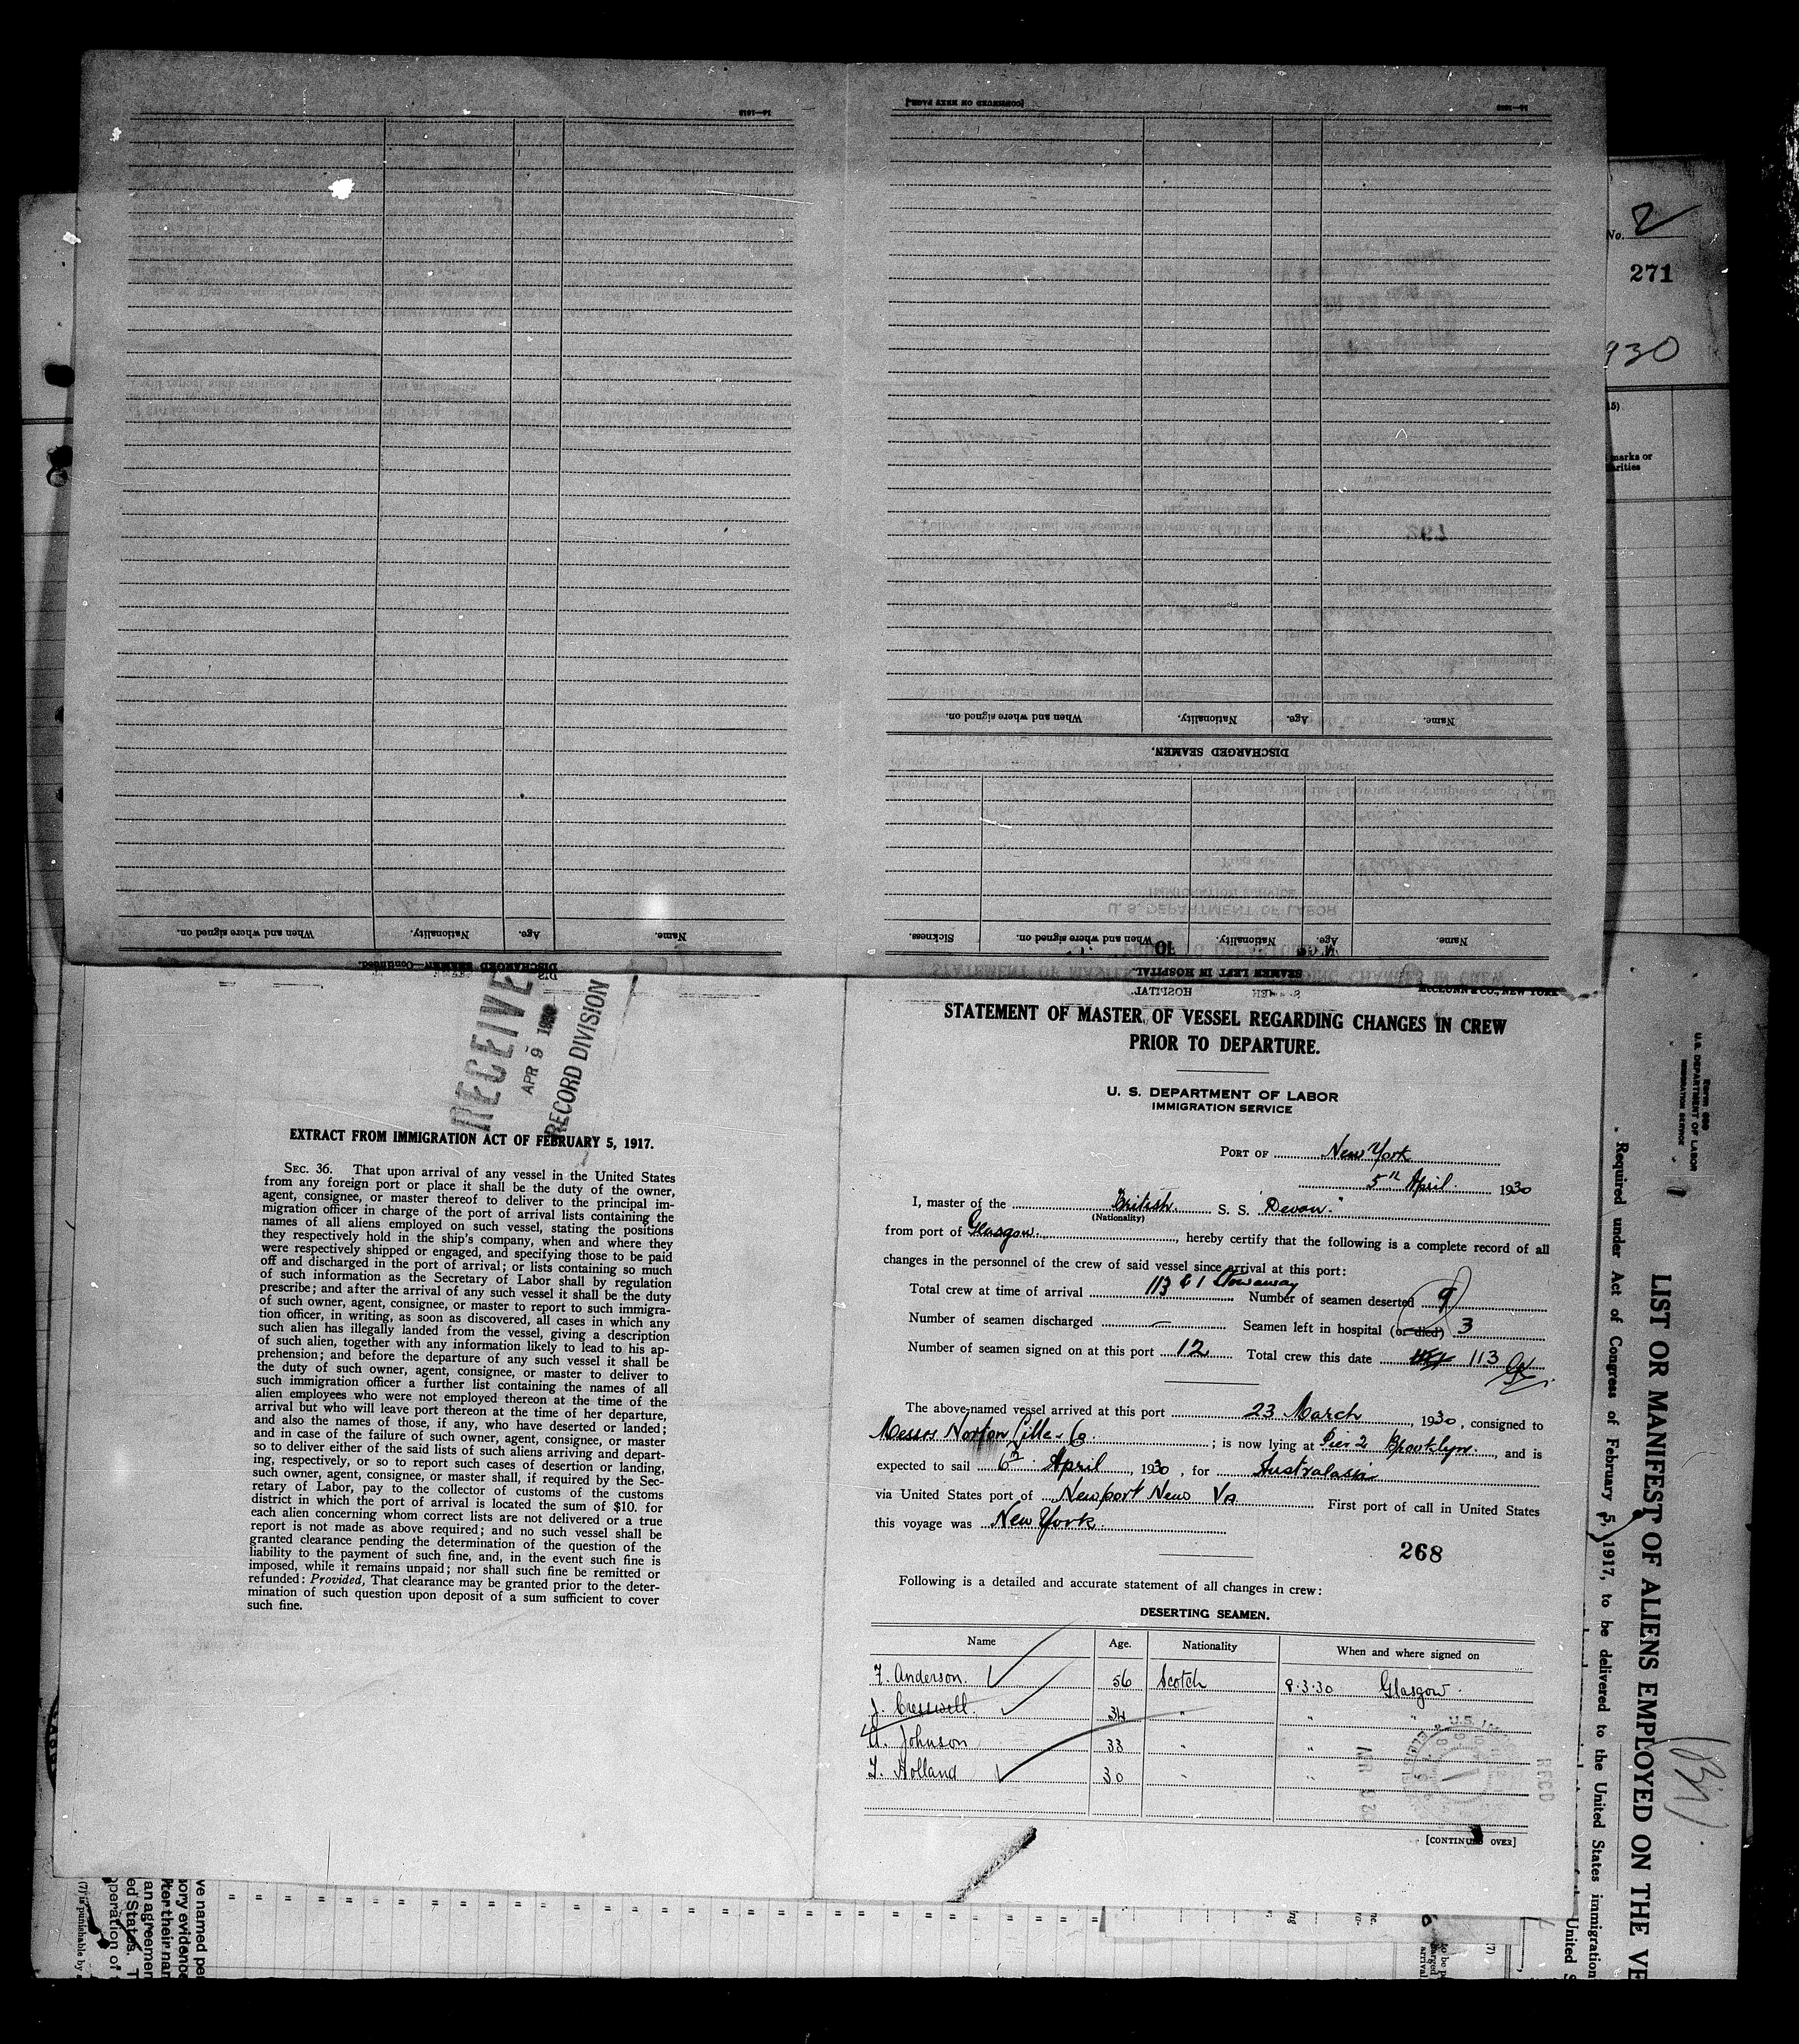 No. 2
271
930
marks or
[CONTINUED ON NEXT PAGE.]
14—1618
Name.
Age.
Nationality.
When and where signed on.
DISCHARGED SEAMEN.
Name.
Age.
Nationality.
When and where signed on.
Sickness.
SEAMEN LEFT IN HOSPITAL.
Name.
Age.
Nationality.
When and where signed on.
DISCHARGED SEAMEN—Continued.
RECEIVE
APR 9 1930
RECORD DIVISION
EXTRACT FROM IMMIGRATION ACT OF FEBRUARY 5, 1917.
SEC. 36. That upon arrival of any vessel in the United States
from any foreign port or place it shall be the duty of the owner,
agent, consignee, or master thereof to deliver to the principal im-
migration officer in charge of the port of arrival lists containing the
names of all aliens employed on such vessel, stating the positions
they respectively hold in the ship's company, when and where they
were respectively shipped or engaged, and specifying those to be paid
off and discharged in the port of arrival; or lists containing so much
of such information as the Secretary of Labor shall by regulation
prescribe; and after the arrival of any such vessel it shall be the duty
of such owner, agent, consignee, or master to report to such immigra-
tion officer, in writing, as soon as discovered, all cases in which any
such alien has illegally landed from the vessel, giving a description
of such alien, together with any information likely to lead to his ap-
prehension; and before the departure of any such vessel it shall be
the duty of such owner, agent, consignee, or master to deliver to
such immigration officer a further list containing the names of all
alien employees who were not employed thereon at the time of the
arrival but who will leave port thereon at the time of her departure,
and also the names of those, if any, who have deserted or landed;
and in case of the failure of such owner, agent, consignee, or master
so to deliver either of the said lists of such aliens arriving and depart-
ing, respectively, or so to report such cases of desertion or landing,
such owner, agent, consignee, or master shall, if required by the Sec-
retary of Labor, pay to the collector of customs of the customs
district in which the port of arrival is located the sum of $10. for
each alien concerning whom correct lists are not delivered or a true
report is not made as above required; and no such vessel shall be
granted clearance pending the determination of the question of the
liability to the payment of such fine, and, in the event such fine is
imposed, while it remains unpaid; nor shall such fine be remitted or
refunded: Provided, That clearance may be granted prior to the deter-
mination of such question upon deposit of a sum sufficient to cover
such fine.
McCLUNN & CO., NEW YORK
STATEMENT OF MASTER OF VESSEL REGARDING CHANGES IN CREW
PRIOR TO DEPARTURE.
U. S. DEPARTMENT OF LABOR
IMMIGRATION SERVICE
PORT OF New York
5th April. 1930
I, master of the British. S. S. "Devon."
(Nationality)
from port of Glasgow., hereby certify that the following is a complete record of all
changes in the personnel of the crew of said vessel since arrival at this port:
Total crew at time of arrival 113 & 1 Stowaway Number of seamen deserted 9
Number of seamen discharged — Seamen left in hospital (or died) 3
Number of seamen signed on at this port 12 Total crew this date 113
The above-named vessel arrived at this port 23 March, 1930, consigned to
Messrs Norton Lilly & Co.; is now lying at Pier 2 Brooklyn., and is
expected to sail 6th April, 1930, for Australasia
via United States port of Newport News Va First port of call in United States
this voyage was New York.
268
Following is a detailed and accurate statement of all changes in crew:
DESERTING SEAMEN.
Name Age. Nationality When and where signed on
F. Anderson. 56 Scotch 8.3.30 Glasgow.
J. Cresswell. 34 " " "
A. Johnson 33 " "
T. Holland 30 " "
RECD
[CONTINUED OVER]
Form 689
U.S. DEPARTMENT OF LABOR
IMMIGRATION SERVICE
Required under Act of Congress of February 5, 1917, to be delivered to the United States immigration
LIST OR MANIFEST OF ALIENS EMPLOYED ON THE VE
ve named pe
ory evidenc
fter their nar
an agreemen
ed States. T
peration of
(7) is punishable by
United S